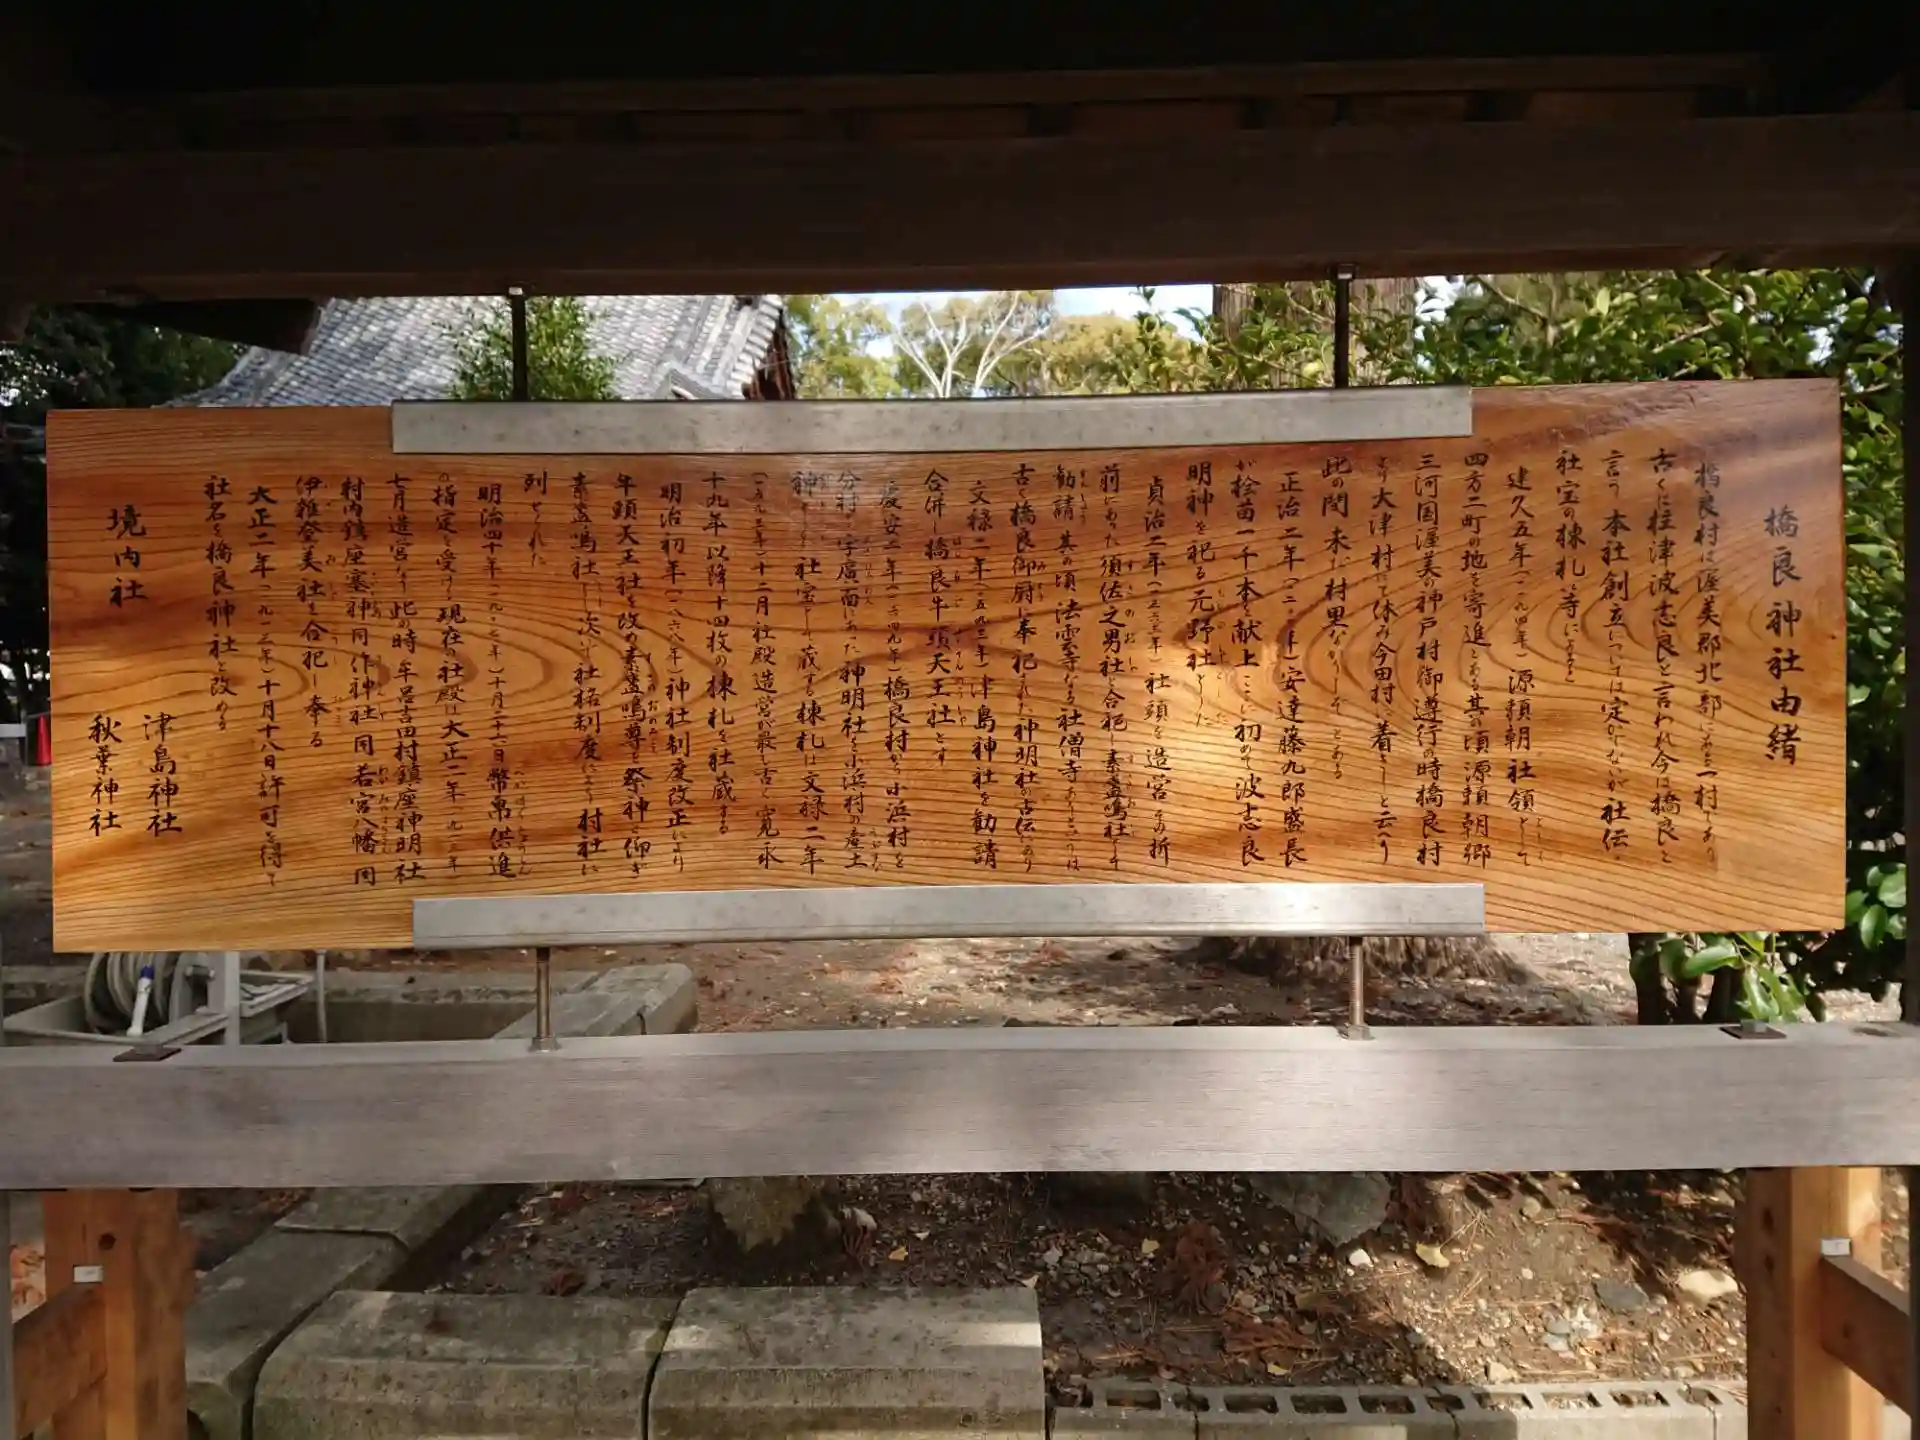 橋良神社由緒
橋良村は渥美郡北部にある一村であり
古くに柱津波志良と言われ今は橋良と
言う 本社創立については定かでないが 社伝・
社宝の棟札等によると
建久五年(一一九四年) 源頼朝社領として
四方二町の地を寄進とある其の頃源頼朝郷
三河国渥美の神戸村御遵行の時橋良村
より大津村にて休み今田村に着きしと云へり
此の間未だ村里なかりしぞとある
正治二年(一二〇〇年)安達藤九郎盛長
が桧苗一千本を献上ここに初めて波志良
明神を祀る元野社とした
貞治二年(一三六三年)社頭を造営その折
前にあった須佐之男社を合祀し素盞鳴社と
勧請 其の頃法雲寺なる社僧寺あり
古く橋良御厨に奉祀された神明社の古伝あり
文禄二年(一五九三年)津島神社を勧請
合併し橋良牛頭天王社とす
慶安二年(一六四九年)橋良村から小浜村を
分村 字廣面にあった神明社を小浜村の産土
神とした 社宝として蔵する棟札は文禄二年
(一五九三年)十二月社殿造営が最も古く寛永
十九年以降十四枚の棟札を社蔵する
明治初年(一八六八年)神社制度改正により
牛頭天王社を改め素盞鳴尊を祭神と仰ぎ
素盞鳴社とし次いで社格制度により村社に
列せられた
明治四十年(一九〇七年)十月二十六日幣帛供進
の指定を受ける現在の社殿は大正一年(一九一二年)
七月造営なり 此の時牟呂吉田村鎮座神明社
村内鎮座塞神同作神社同若宮八幡同
伊雑登美社を合祀し奉る
大正二年(一九一三年)十月十八日許可を得て
社名を橋良神社と改める
境内社
津島神社
秋葉神社